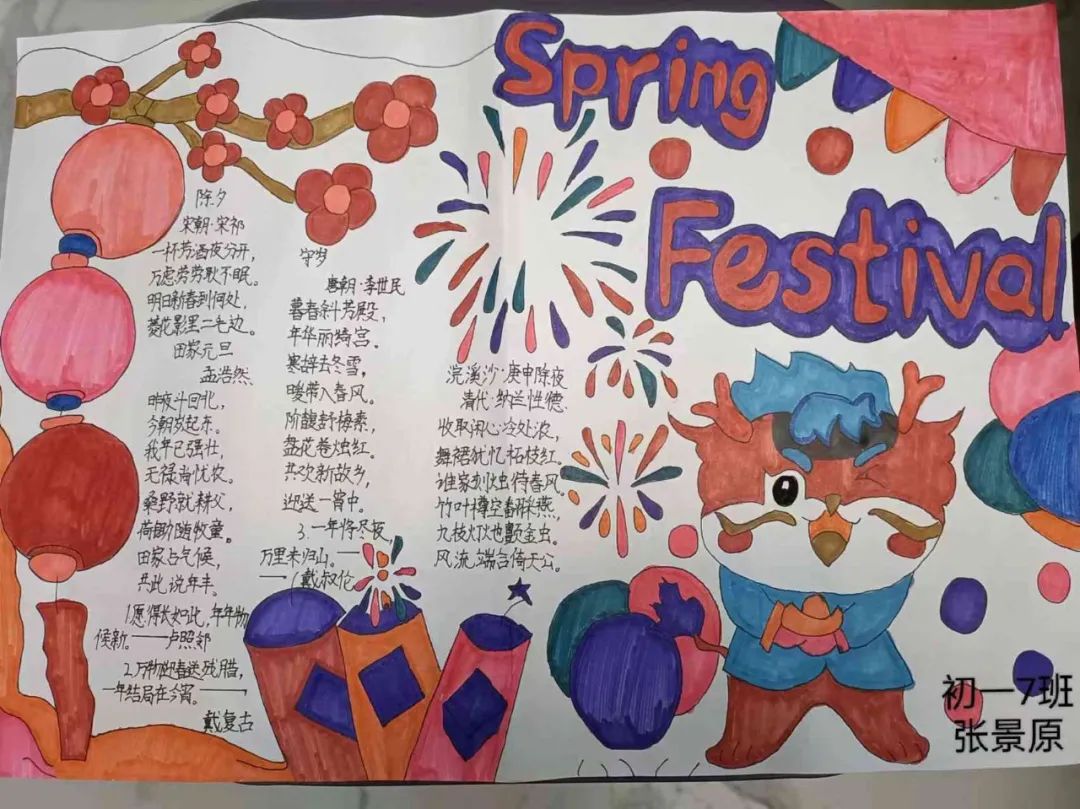 Spring
Festival
除夕
宋朝·宋祁
一杯芳酒夜分开,
万虑劳劳耿不眠。
明日新春到何处,
菱花影里二毛边。
田家元旦
孟浩然
昨夜斗回北,
今朝岁起东。
我年已强壮,
无禄尚忧农。
桑野就耕父,
荷锄随牧童。
田家占气候,
共此说年丰。
1.愿得长如此,年年物
候新。——卢照邻
2.万物迎春送残腊,
一年结局在今宵。——
戴复古
守岁
唐朝·李世民
暮春斜芳殿,
年华丽绮宫。
寒辞去冬雪,
暖带入春风。
阶馥舒梅素,
盘花卷烛红。
共欢新故乡,
迎送一宵中。
3.一年将尽夜,
万里未归山。——
——(戴叔伦
浣溪沙·庚申除夜
清代·纳兰性德
收取闲心冷处浓,
舞裙犹忆柘枝红。
谁家刻烛待春风。
竹叶樽空翻彩燕,
九枝灯灺颤金虫。
风流端合倚天公。
初一7班
张景原